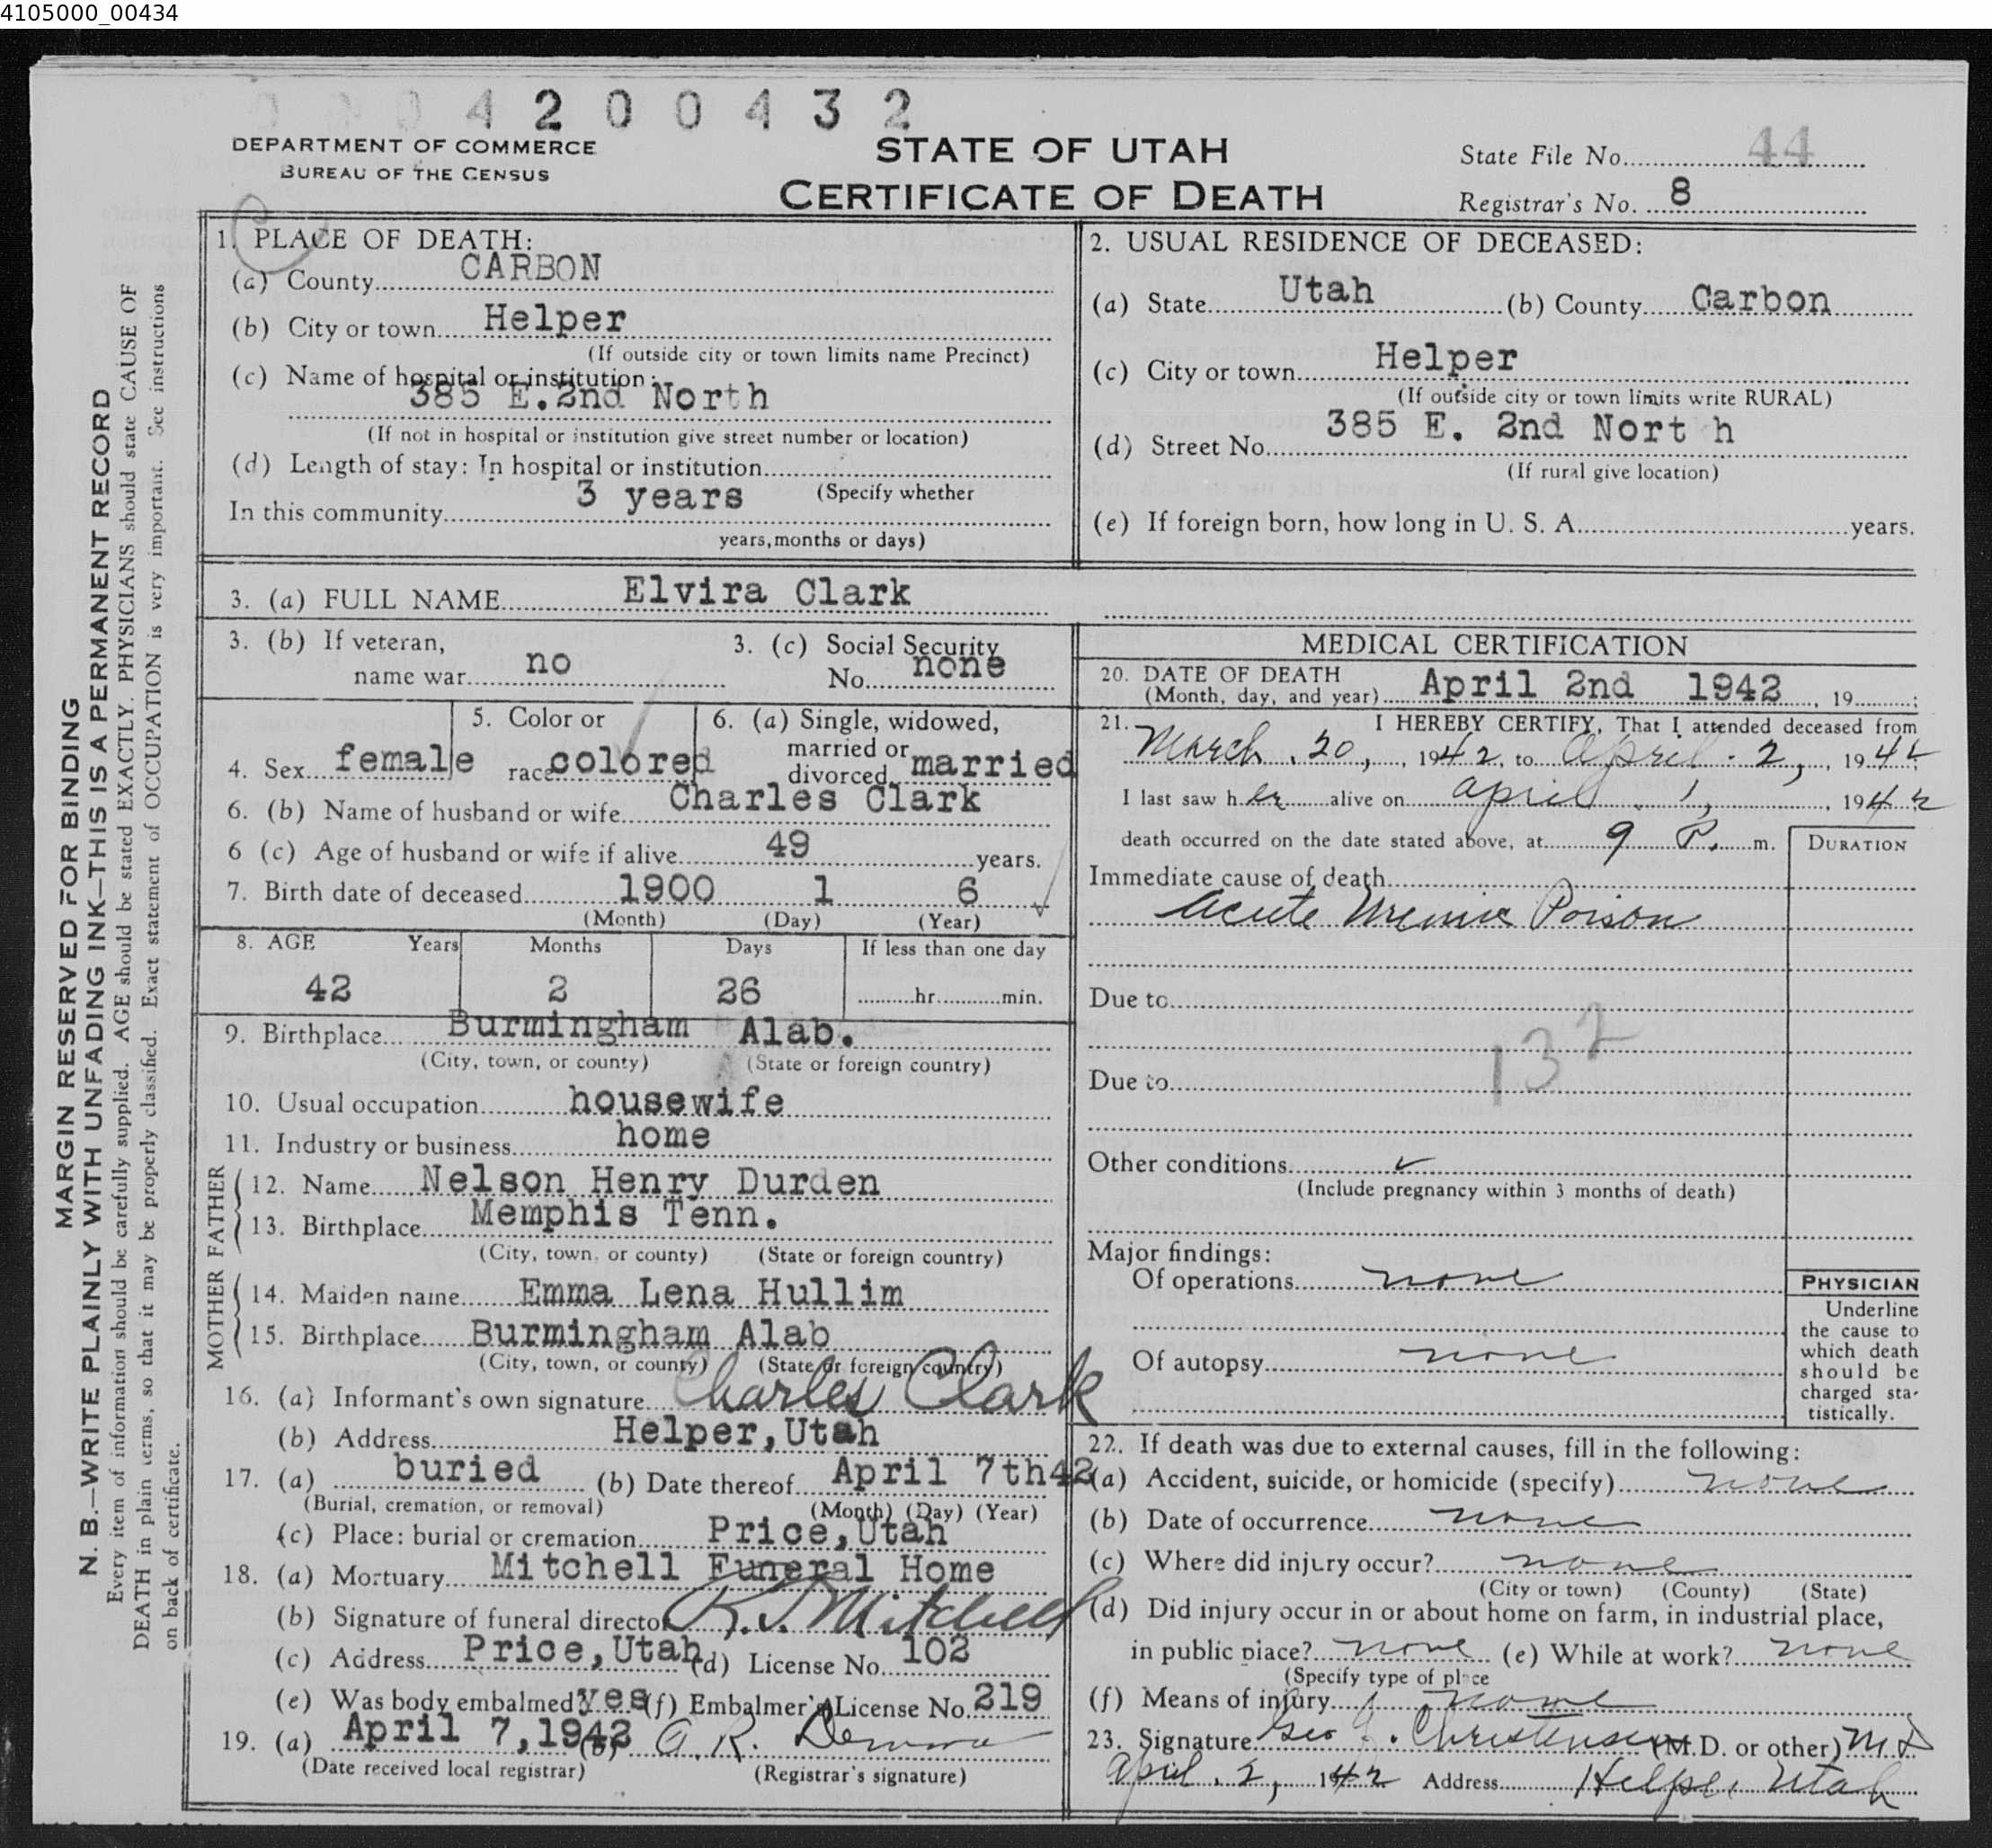 4105000_00434
4 2 0 0 4 3 2
DEPARTMENT OF COMMERCE
BUREAU OF THE CENSUS
STATE OF UTAH
CERTIFICATE OF DEATH
State File No. 44
Registrar's No. 8
MARGIN RESERVED FOR BINDING
N. B.—WRITE PLAINLY WITH UNFADING INK—THIS IS A PERMANENT RECORD
Every item of information should be carefully supplied. AGE should be stated EXACTLY. PHYSICIANS should state CAUSE OF
DEATH in plain terms, so that it may be properly classified. Exact statement of OCCUPATION is very important. See instructions
on back of certificate.
1. PLACE OF DEATH:
(a) County CARBON
(b) City or town Helper
(If outside city or town limits name Precinct)
(c) Name of hospital or institution:
385 E.2nd North
(If not in hospital or institution give street number or location)
(d) Length of stay: In hospital or institution
(Specify whether
In this community 3 years
years, months or days)
2. USUAL RESIDENCE OF DECEASED:
(a) State Utah (b) County Carbon
(c) City or town Helper
(If outside city or town limits write RURAL)
(d) Street No. 385 E. 2nd Nort h
(If rural give location)
(e) If foreign born, how long in U. S. A. years.
3. (a) FULL NAME Elvira Clark
3. (b) If veteran, name war no
3. (c) Social Security No. none
4. Sex female
5. Color or race colored
6. (a) Single, widowed, married or divorced married
6. (b) Name of husband or wife Charles Clark
6 (c) Age of husband or wife if alive 49 years.
7. Birth date of deceased 1900 1 6
(Month) (Day) (Year)
8. AGE Years Months Days If less than one day
42 2 26 hr. min.
9. Birthplace Burmingham Alab.
(City, town, or county) (State or foreign country)
10. Usual occupation housewife
11. Industry or business home
FATHER
12. Name Nelson Henry Durden
13. Birthplace Memphis Tenn.
(City, town, or county) (State or foreign country)
MOTHER
14. Maiden name Emma Lena Hullim
15. Birthplace Burmingham Alab
(City, town, or county) (State or foreign country)
16. (a) Informant's own signature Charles Clark
(b) Address Helper, Utah
17. (a) buried (b) Date thereof April 7th42
(Burial, cremation, or removal) (Month) (Day) (Year)
(c) Place: burial or cremation Price, Utah
18. (a) Mortuary Mitchell Funeral Home
(b) Signature of funeral director Mitchell
(c) Address Price, Utah (d) License No. 102
(e) Was body embalmed? yes (f) Embalmer's License No. 219
19. (a) April 7, 1942 (b) A. R.
(Date received local registrar) (Registrar's signature)
MEDICAL CERTIFICATION
20. DATE OF DEATH
(Month, day, and year) April 2nd 1942, 19 ;
21. I HEREBY CERTIFY, That I attended deceased from
March 20, 1942, to April 2, 1942
I last saw her alive on april 1, 1942
death occurred on the date stated above, at 9 P. m.
DURATION
Immediate cause of death
acute Uremic Poison
Due to
132
Due to
Other conditions
(Include pregnancy within 3 months of death)
Major findings:
Of operations none
Of autopsy none
PHYSICIAN
Underline
the cause to
which death
should be
charged sta-
tistically.
22. If death was due to external causes, fill in the following:
(a) Accident, suicide, or homicide (specify) none
(b) Date of occurrence none
(c) Where did injury occur? none
(City or town) (County) (State)
(d) Did injury occur in or about home on farm, in industrial place,
in public place? none (e) While at work? none
(Specify type of place
(f) Means of injury none
23. Signature Geo J. Christensen (M.D. or other) MD
April 2, 1942 Address Helper Utah